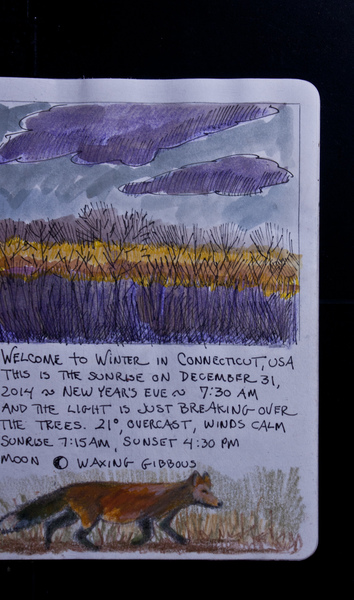 WELCOME TO WINTER IN CONNECTICUT, USA
THIS IS THE SUNRISE ON DECEMBER 31,
2014 ~ NEW YEAR'S EVE ~ 7:30 AM
AND THE LIGHT IS JUST BREAKING OVER
THE TREES. 21°, OVERCAST, WINDS CALM
SUNRISE 7:15AM, SUNSET 4:30 PM
MOON WAXING GIBBOUS